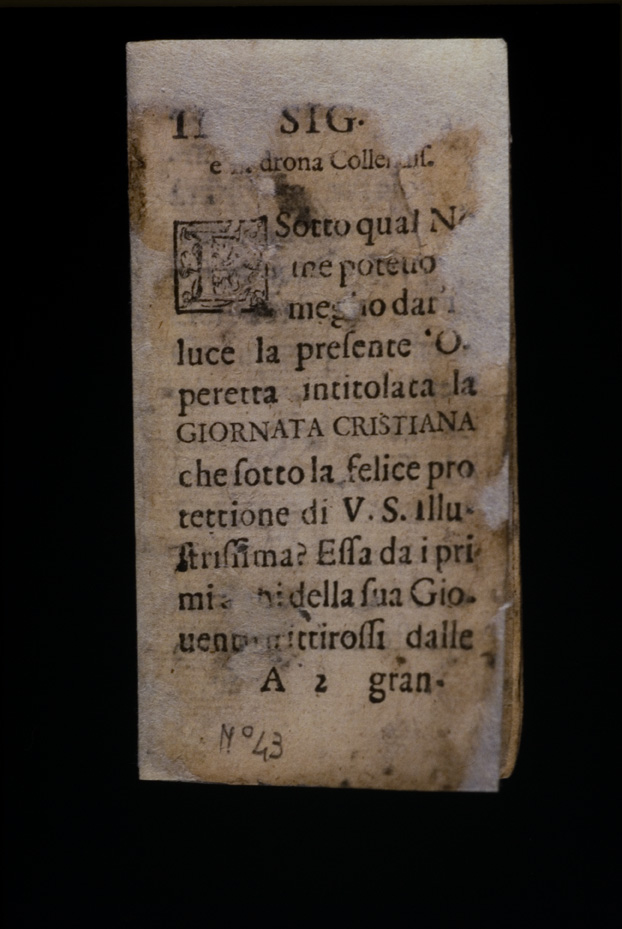 SIG.
e drona
E Sotto qual
me poteuo
meglio dar
luce la preſente O.
peretta intitolata la
GIORNATA CRISTIANA
che ſotto la felice pro
tettione di V. S. Illu-
ſtriſſima? Eſſa da i pri
della ſua Gio-
dalle
A 2 gran-
Nº 43